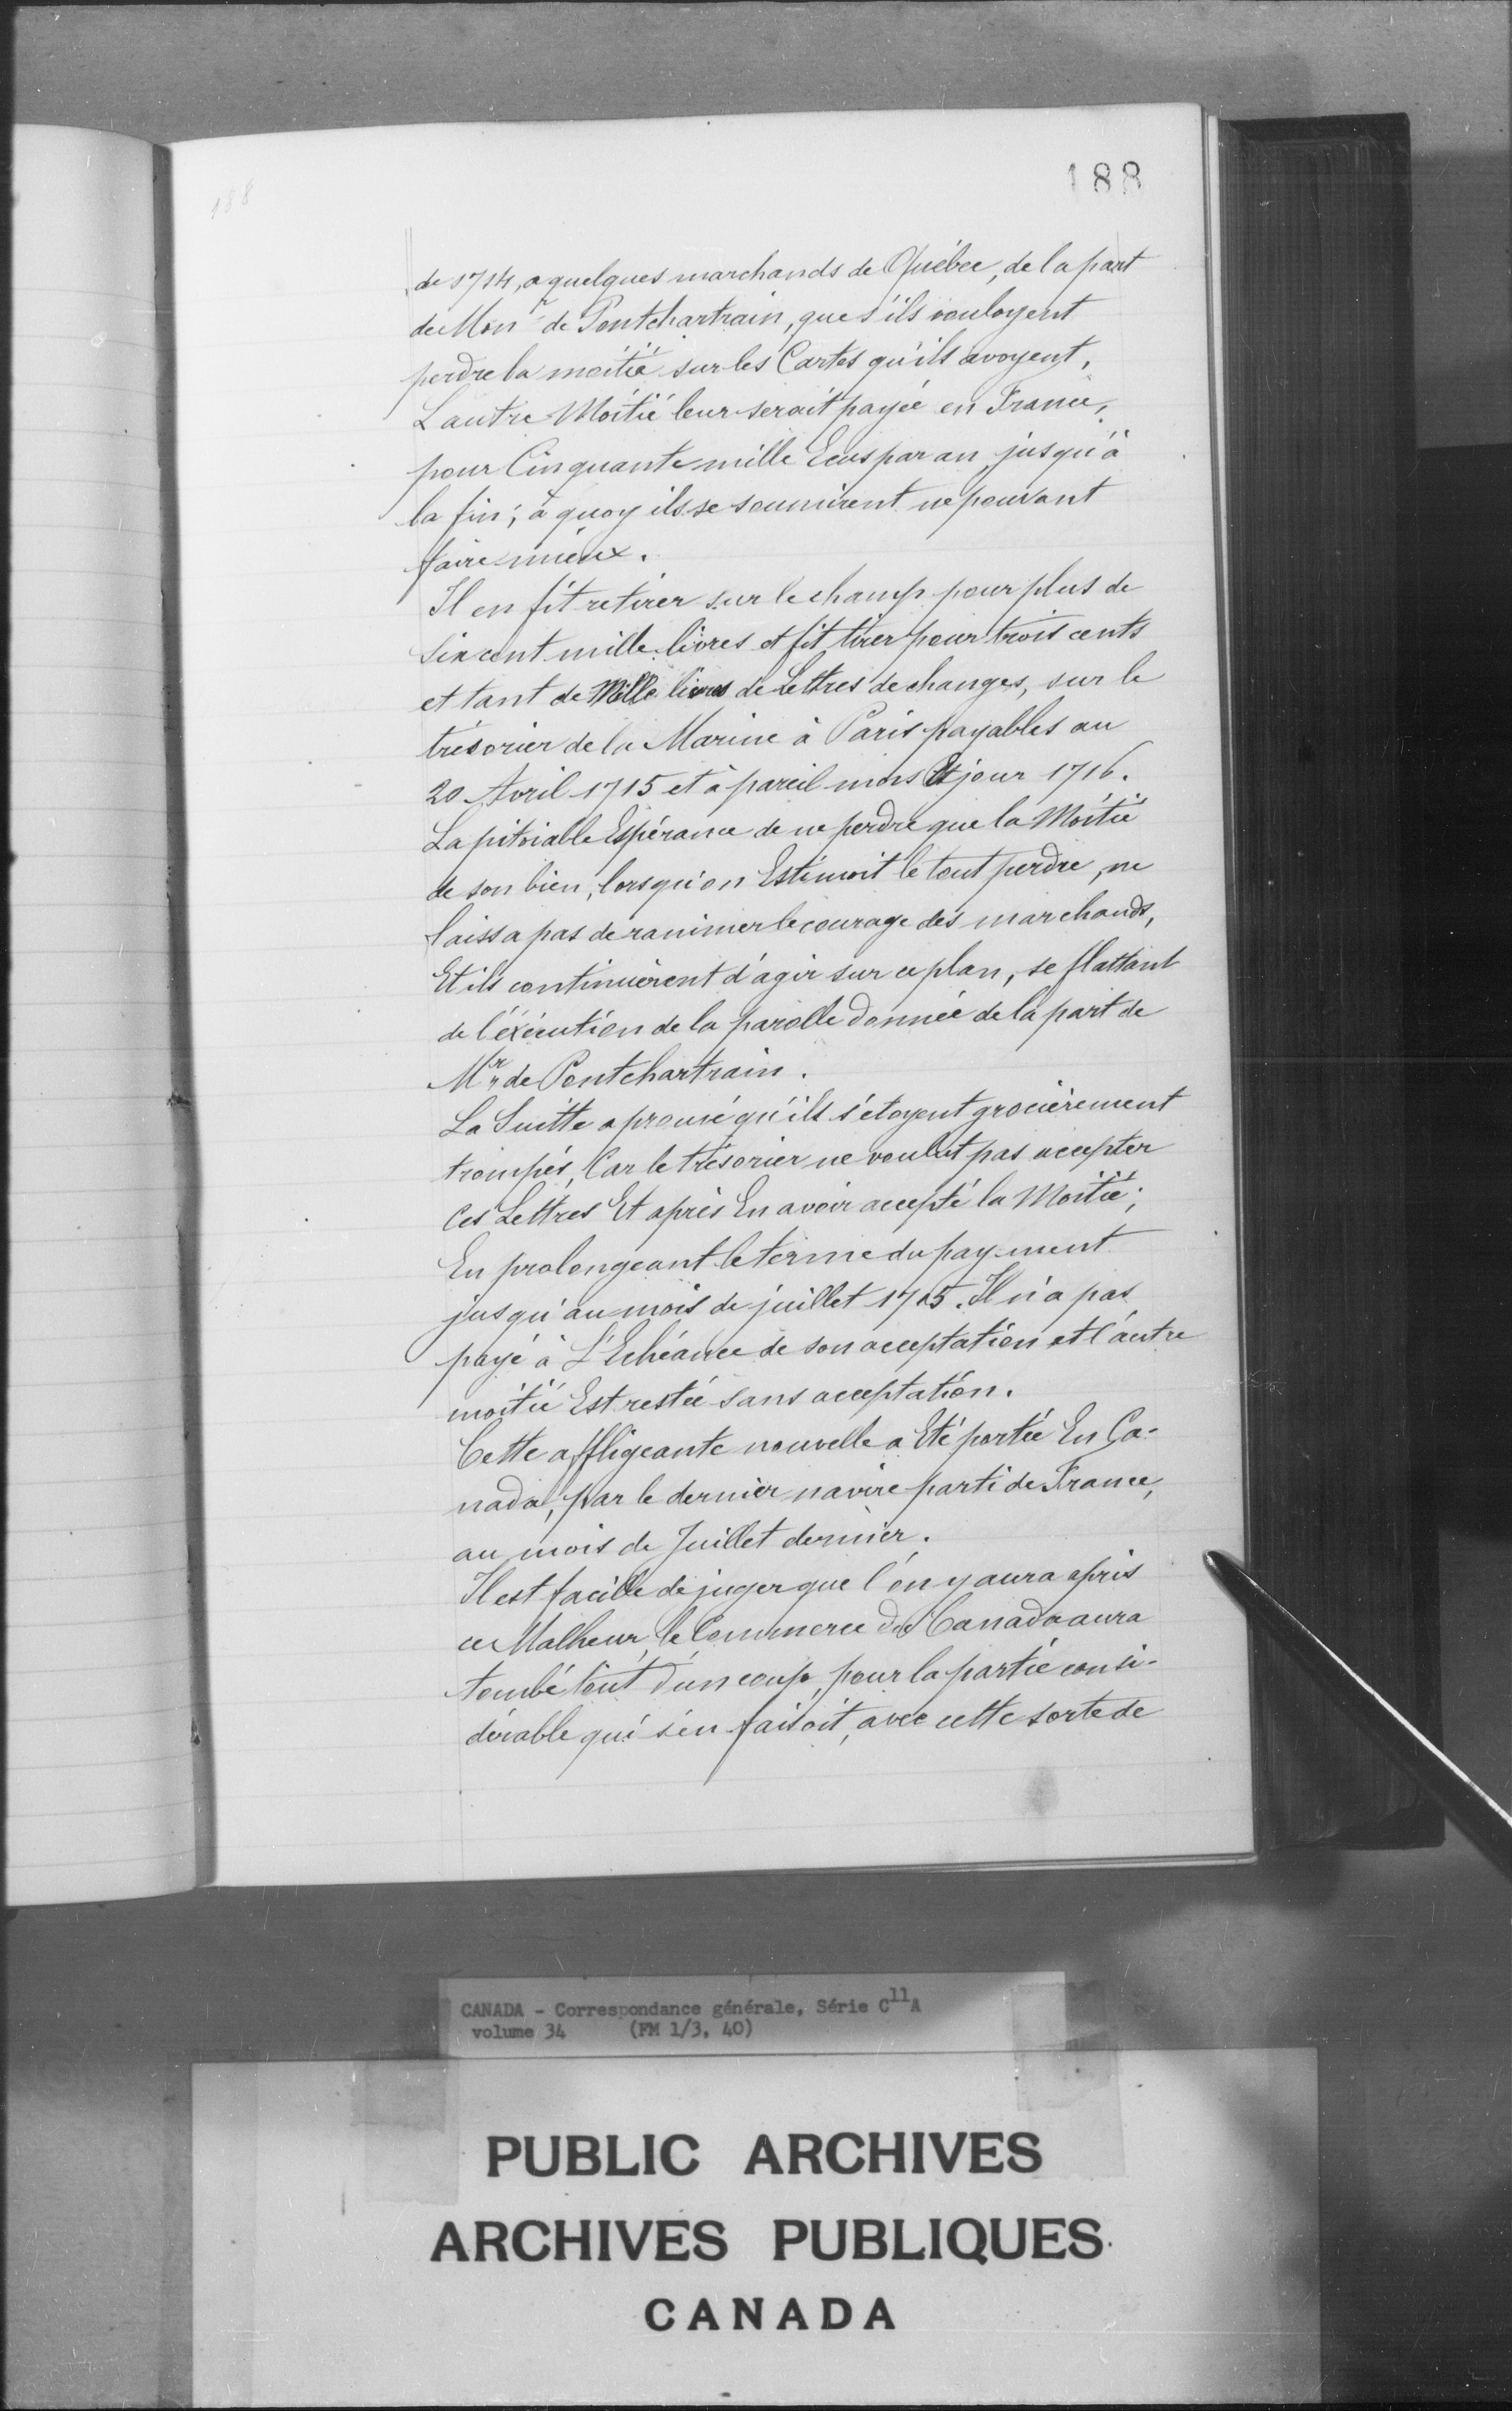 188
188
de 1714, a quelques marchands de Québec, de la part
de Monr de Pontchartrain, que s'ils vouloyent
perdre la moitié sur les Cartes qu'ils avoyent,
L'autre Moitié leur serait payée en France,
pour Cinquante mille Ecus par an jusqu'à
la fin; à quoy ils se soumirent ne pouvant
faire mieux.
Il en fit retirer sur le champ pour plus de
Six cent mille livres et fit tirer pour trois cents
et tant de Mille livres de Lettres de changes, sur le
trésorier de la Marine à Paris payables au
20 Avril 1715 et à pareil mois Et jour 1716.
La pitoiable Espérance de ne perdre que la Moitié
de son bien, lorsqu'on Estimoit le tout perdre, ne
laissa pas de ranimer le courage des marchands,
Et ils continuèrent d'agir sur ce plan, se flattant
de l'éxécution de la parolle donnée de la part de
Mr de Pontchartrain.
La Suitte a prouvé qu'ils s'étoyent grocièrement
trompés, Car le trésorier ne voulut pas accepter
Ces Lettres Et après En avoir accepté la Moitié;
En prolongeant le terme du payement
jusqu'au mois de juillet 1715. Il n'a pas
payé à L'Echéance de son acceptation et l'autre
moitié Est restée sans acceptation.
Cette affligeante nouvelle a Eté portée En Ca-
nada, par le dernier navire parti de France,
au mois de Juillet dernier.
Il est facile de juger que l'on y aura apris
ce Malheur, le Commerce du Canada aura
tombé tout d'un coup, pour la partie consi-
dérable qui s'en faisoit, avec cette sorte de
CANADA - Correspondance générale, Série C11A
volume 34 (FM 1/3, 40)
PUBLIC ARCHIVES
ARCHIVES PUBLIQUES
CANADA